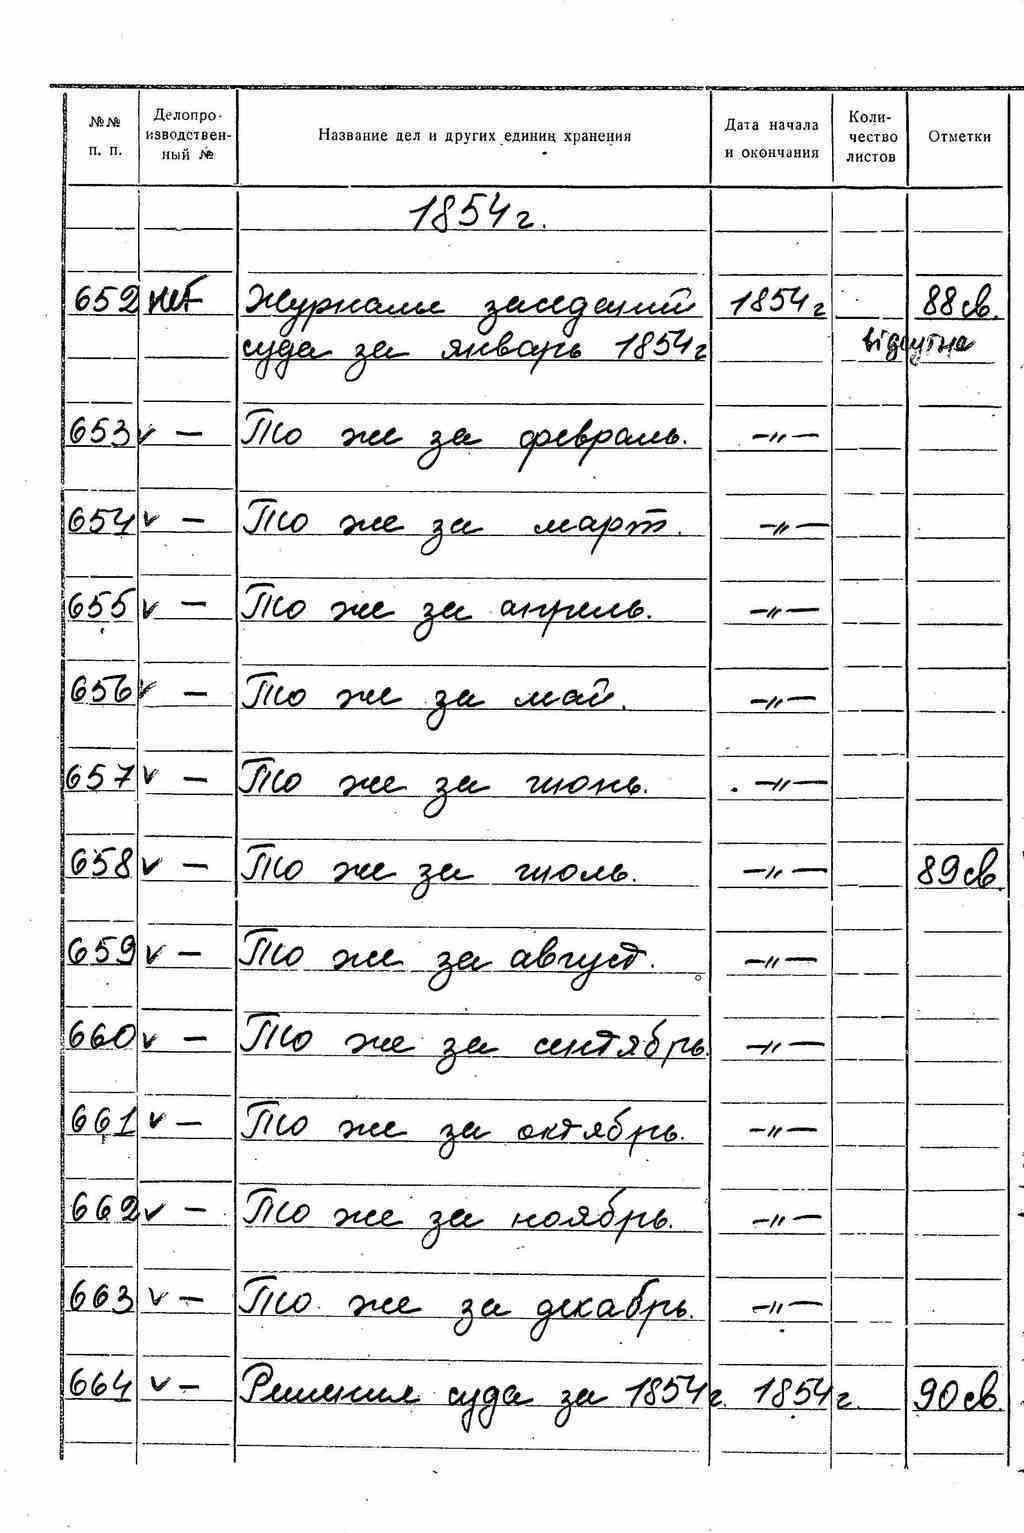 №№ п. п. Делопроизводственный № Название дел и других единиц хранения Дата начала и окончания Количество листов Отметки
1854 г.
652 нет Журналы заседаний 1854 г 88 св.
суда за январь 1854 г відсутна
653 v — То же за февраль. —〃—
654 v — То же за март. —〃—
655 v — То же за апрель. —〃—
656 v — То же за май. —〃—
657 v — То же за июнь. —〃—
658 v — То же за июль. —〃— 89 св.
659 v — То же за август. —〃—
660 v — То же за сентябрь. —〃—
661 v — То же за октябрь. —〃—
662 v — То же за ноябрь. —〃—
663 v — То же за декабрь. —〃—
664 v — Решения суда за 1854 г. 1854 г. 90 св.